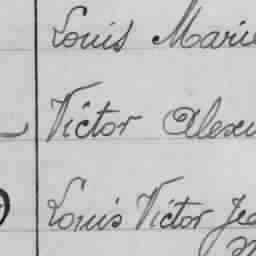 Louis Marie
Victor Alex
Louis Victor Je